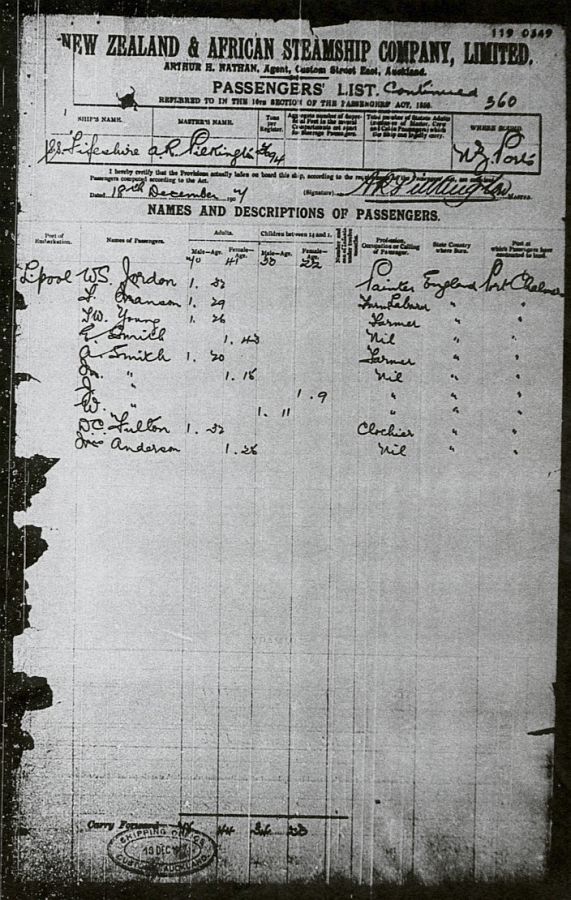 119 0349
NEW ZEALAND & AFRICAN STEAMSHIP COMPANY, LIMITED.
ARTHUR H. NATHAN, Agent, Custom Street East, Auckland.
PASSENGERS' LIST. Continued
360
REFERRED TO IN THE 16TH SECTION OF THE PASSENGERS' ACT, 1855.
SHIP'S NAME. MASTER'S NAME. Tons per Register. WHERE BOUND.
S.S. Fifeshire A.R. Pilkington N.Z. Ports
I hereby certify that the Provisions actually laden on board this ship, according to the
Passengers computed according to the Act.
Dated 18th December 1907 (Signature) A R Pilkington MASTER.
NAMES AND DESCRIPTIONS OF PASSENGERS.
Port of Embarkation. Names of Passengers. Adults. Children between 14 and 1. Profession, Occupation or Calling of Passenger. State Country where Born. Port at which Passengers have contracted to land.
Male—Age. Female—Age. Male—Age. Female—Age.
40 41 33 22
L'pool W.S. Jordon 1. 32 Painter England Port Chalmers
1. 29 Farm Labourer " "
Young 1. 26 Farmer " "
E. Smith 1. 43 Nil " "
A. Smith 1. 20 Farmer " "
" 1. 18 Nil " "
J. " 1. 9 " " "
W. " 1. 11 " " "
D.C. Fulton 1. 32 " "
Anderson 1. 28 Nil " "
Carry Forward 44
SHIPPING OFFICE
DEC
CUSTOMS AUCKLAND